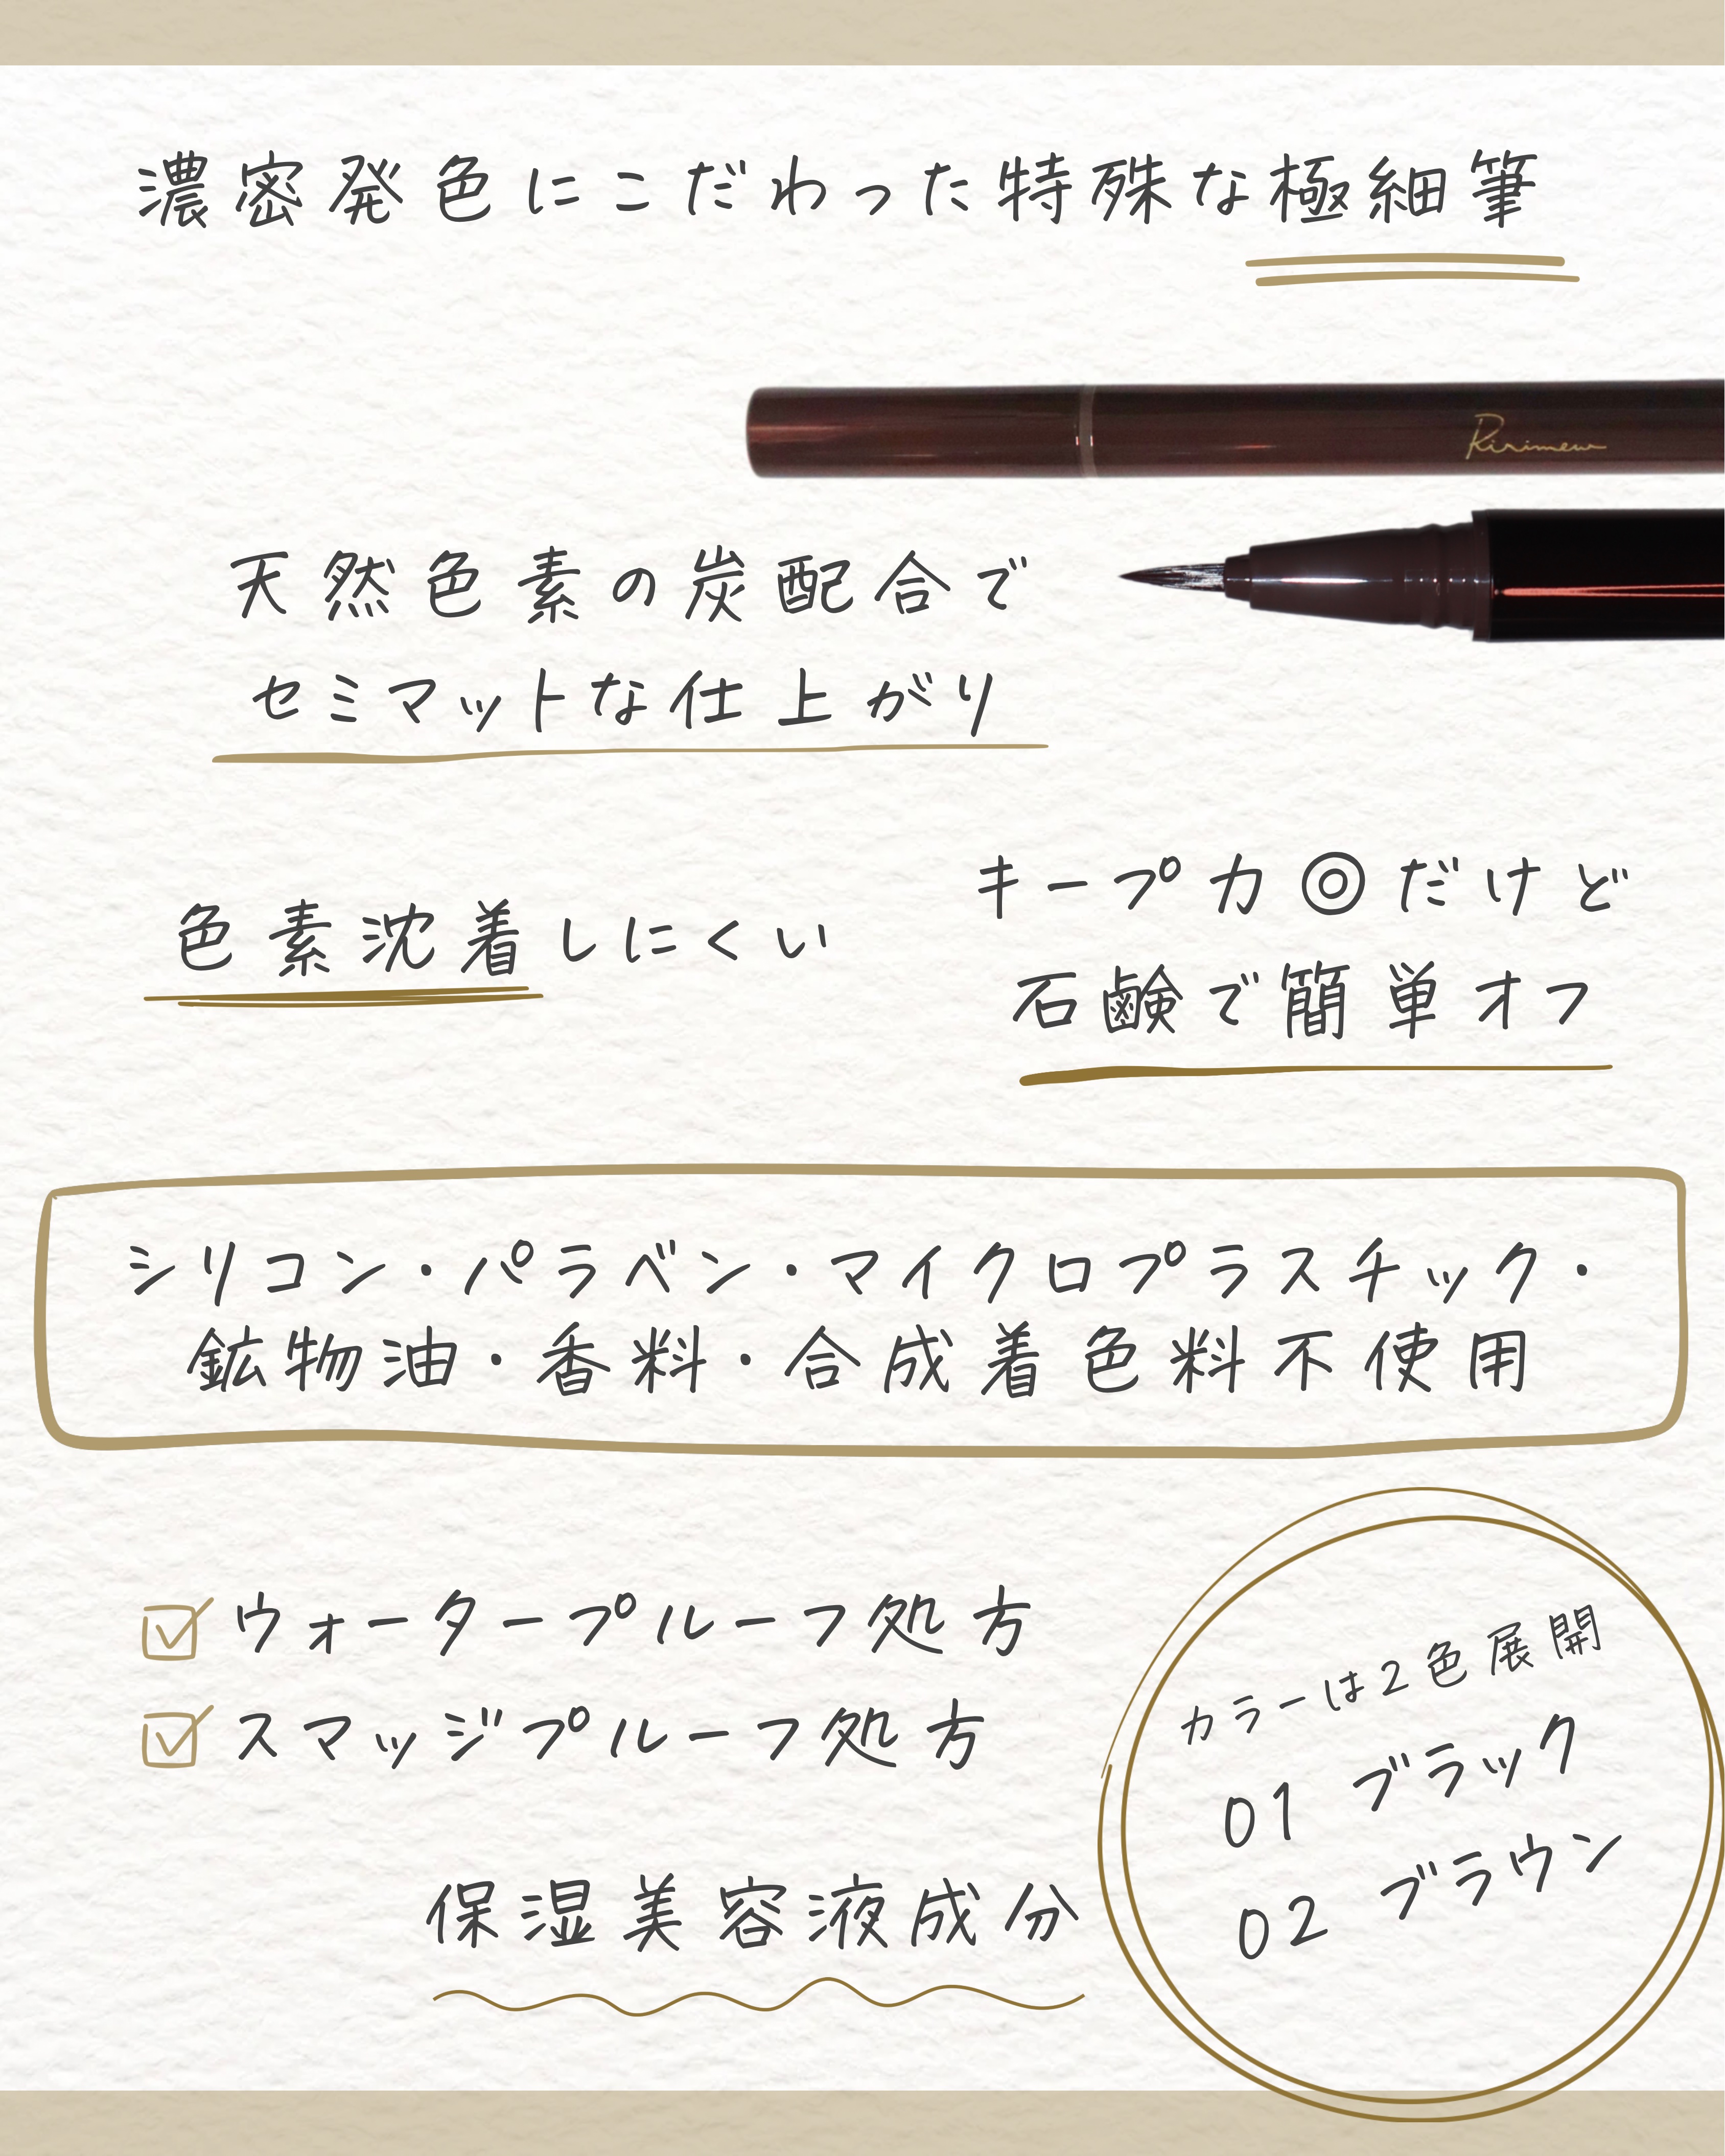 濃密発色にこだわった特殊な極細筆
Ririmew
天然色素の炭配合で
セミマットな仕上がり
色素沈着しにくい
キープ力◎だけど
石鹸で簡単オフ
シリコン・パラベン・マイクロプラスチック・
鉱物油・香料・合成着色料不使用
ウォータープルーフ処方
スマッジプルーフ処方
保湿美容液成分
カラーは2色展開
01 ブラック
02 ブラウン